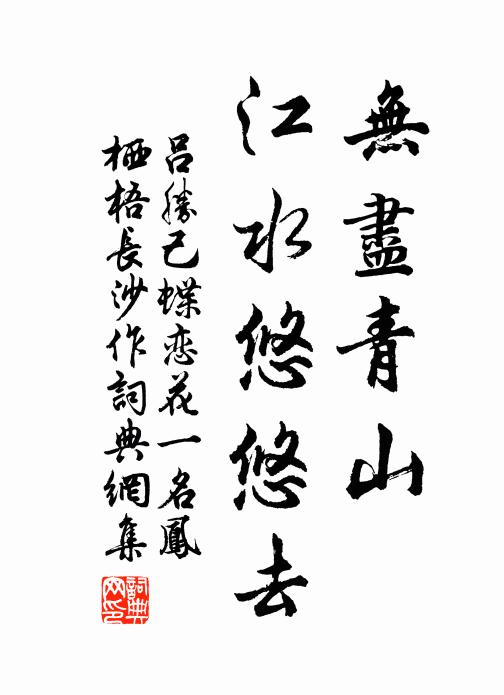 無盡青山
江水悠悠去
呂勝己蝶恋花一名鳳
栖梧長沙作詞典網集
詞典网印